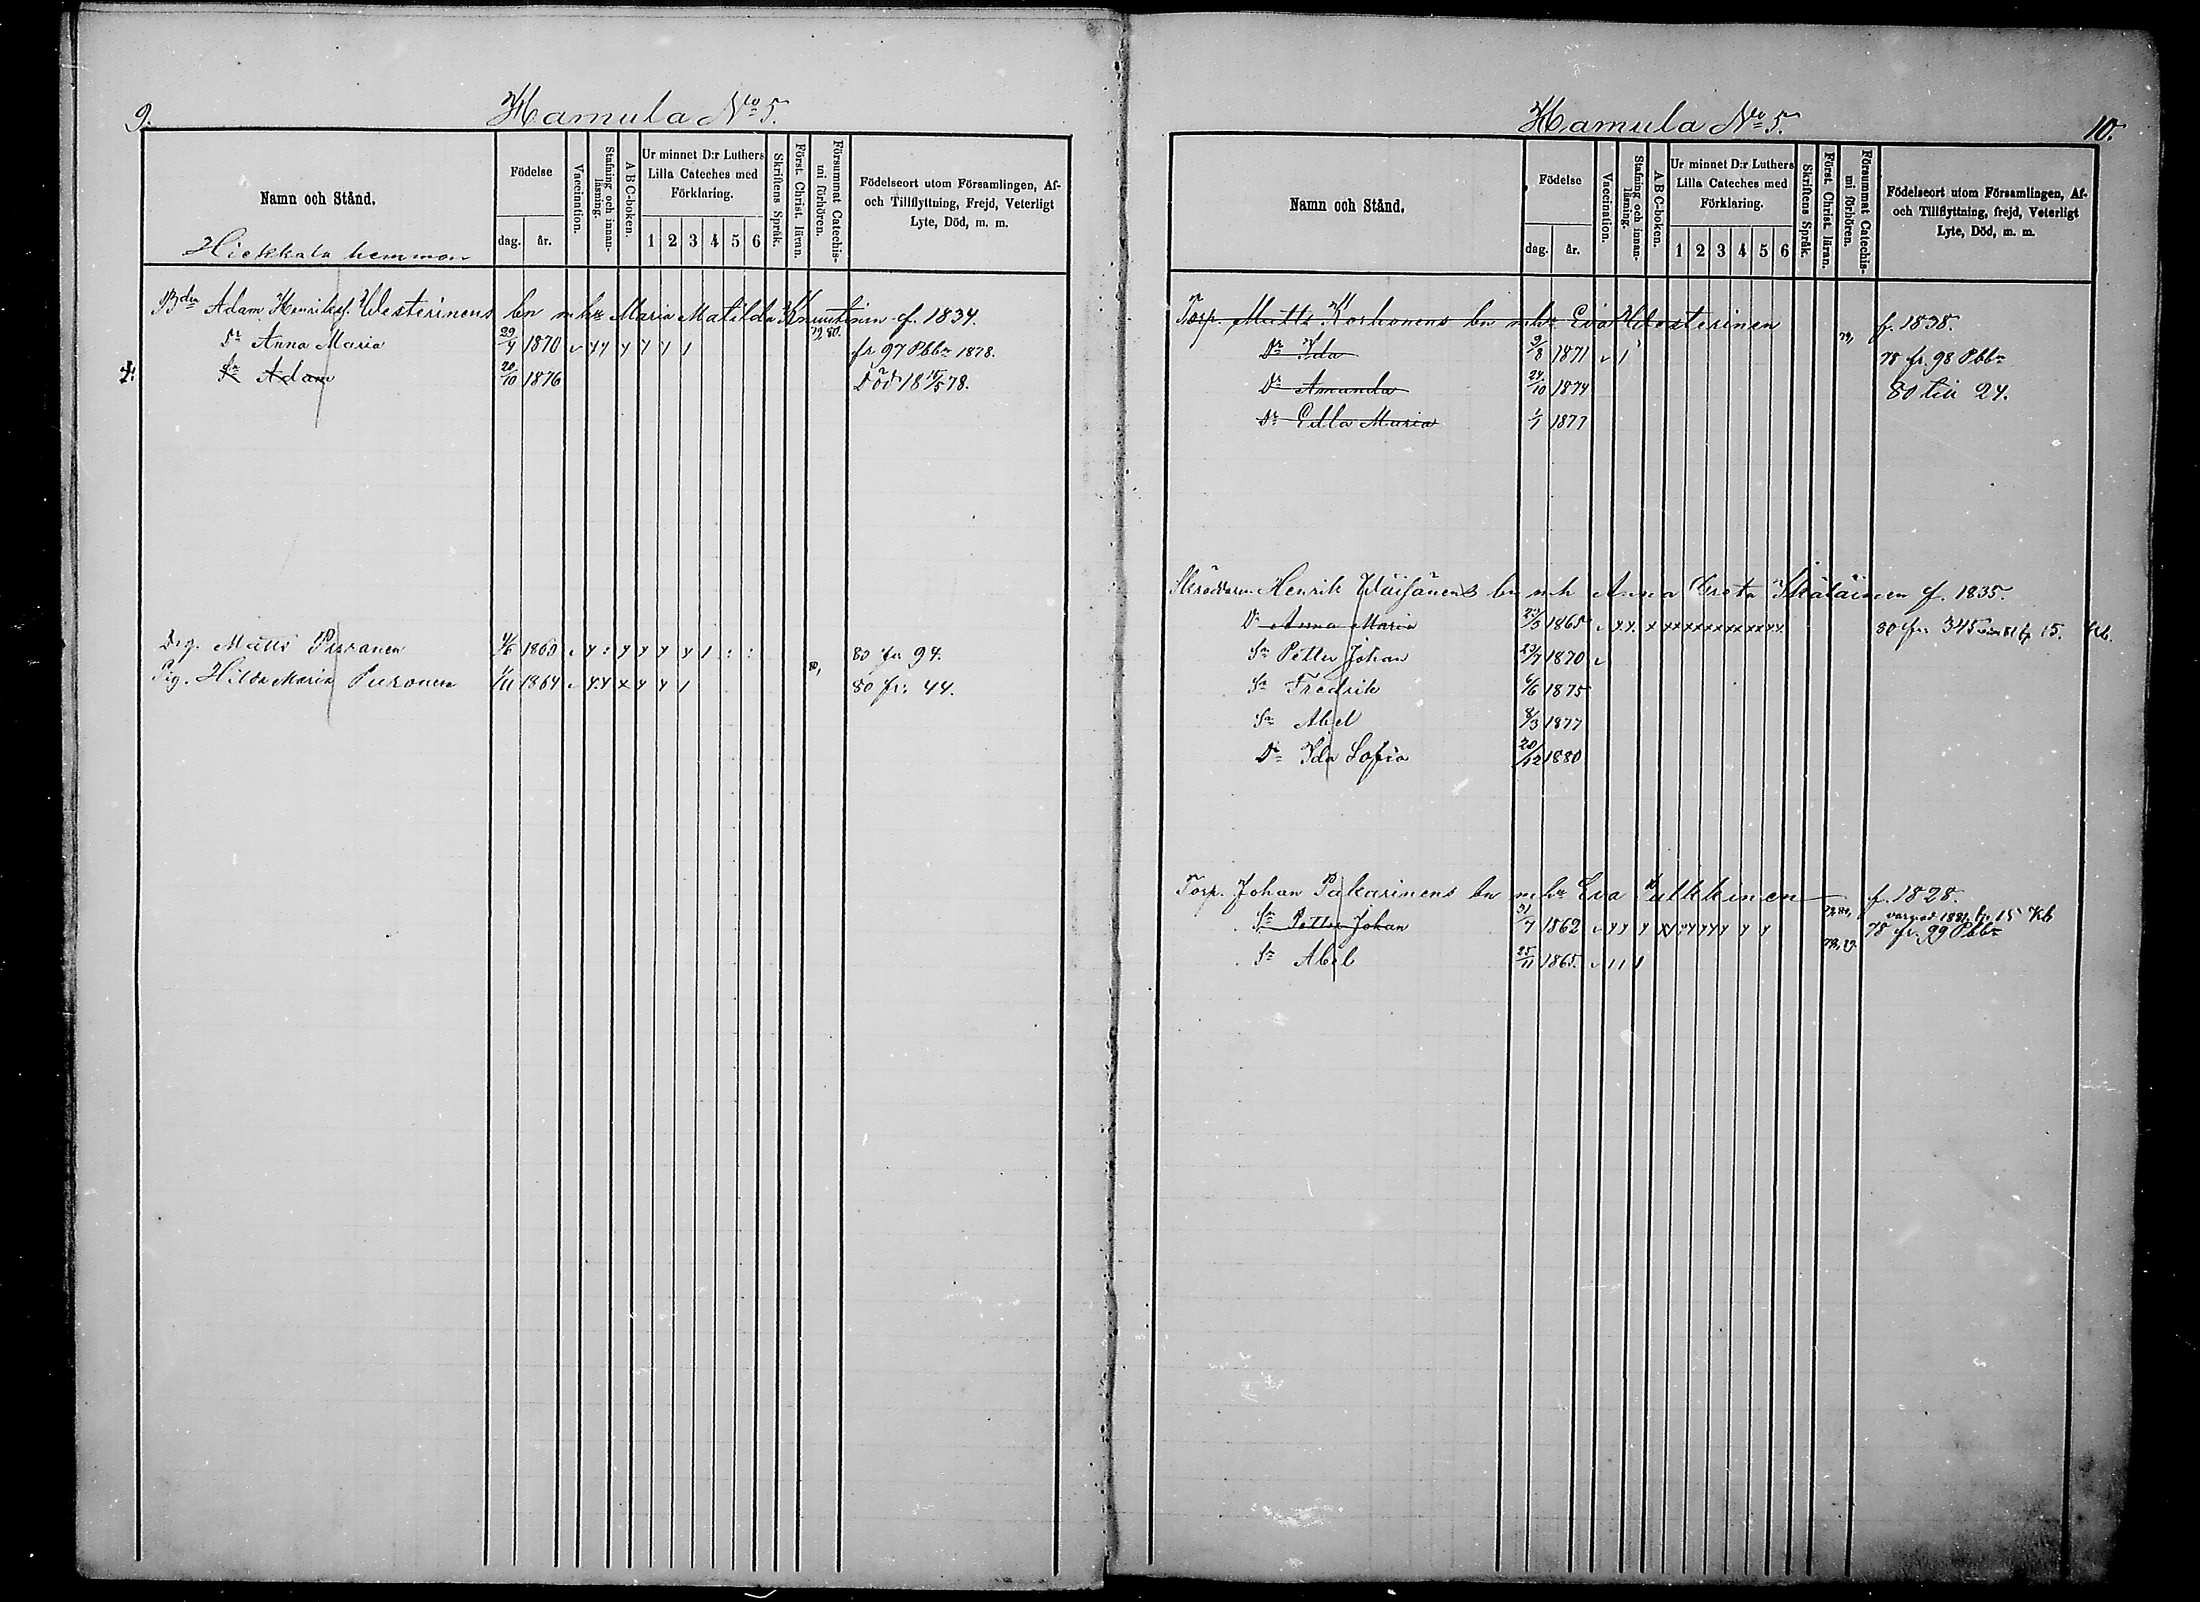 9.
Hamula No 5.
Namn och Stånd.
Födelse
dag. år.
Vaccination.
Stafning och innanläsning.
A B C-boken.
Ur minnet D:r Luthers Lilla Cateches med Förklaring.
1 2 3 4 5 6
Skriftens Språk.
Först. Christ. läran.
Försummat Catechismi förhören.
Födelseort utom Församlingen, Af- och Tillflyttning, Frejd, Veterligt Lyte, Död, m. m.
Hiekkala hemman
Bdn Adam Henriksf. Westerinens bn mhr Maria Matilda Knuutinen f. 1834.
79, 80.
Dr Anna Maria 29/4 1870 fr 97 Pbbr 1878.
Sn Adam 20/10 1876 Död 18 15/5 78.
Drg. Matts 1/6 1860 80 fr 94.
80,
Pig. Hilda Maria Puronen 1/11 1864 80 fr. 44.
Hamula No 5.
10.
Namn och Stånd.
Födelse
dag. år.
Vaccination.
Stafning och innanläsning.
A B C-boken.
Ur minnet D:r Luthers Lilla Cateches med Förklaring.
1 2 3 4 5 6
Skriftens Språk.
Först. Christ. läran.
Försummat Catechismi förhören.
Födelseort utom Församlingen, Af- och Tillflyttning, frejd, Veterligt Lyte, Död, m. m.
Torp. Matts Korhonens bn mhr Eva Westerinen 79, f. 1838.
Dr Ida 9/8 1871 78 fr 98 Pbbr
Dr Amanda 24/10 1874 80 till 24.
Dr Ulla Maria 1/1 1877
Skräddaren Henrik Wäisänens bn mh Anna Greta f. 1835.
Dr Anna Maria 23/3 1865 80 fr. 345 81 fp 15. Kb.
Sn Petter Johan 23/7 1870
Sn Fredrik 6/6 1875
Sn Abel 8/3 1877
Dr Ida Sofia 20/12 1880
Torp. Johan Pakarinens bn mhr Eva Pulkkinen f. 1828.
Sn Petter Johan 31/7 1862 1881. fp. 15 Kb
78 fr. 99 Pbbr
Sn Abel 25/11 1865. 78, 79.